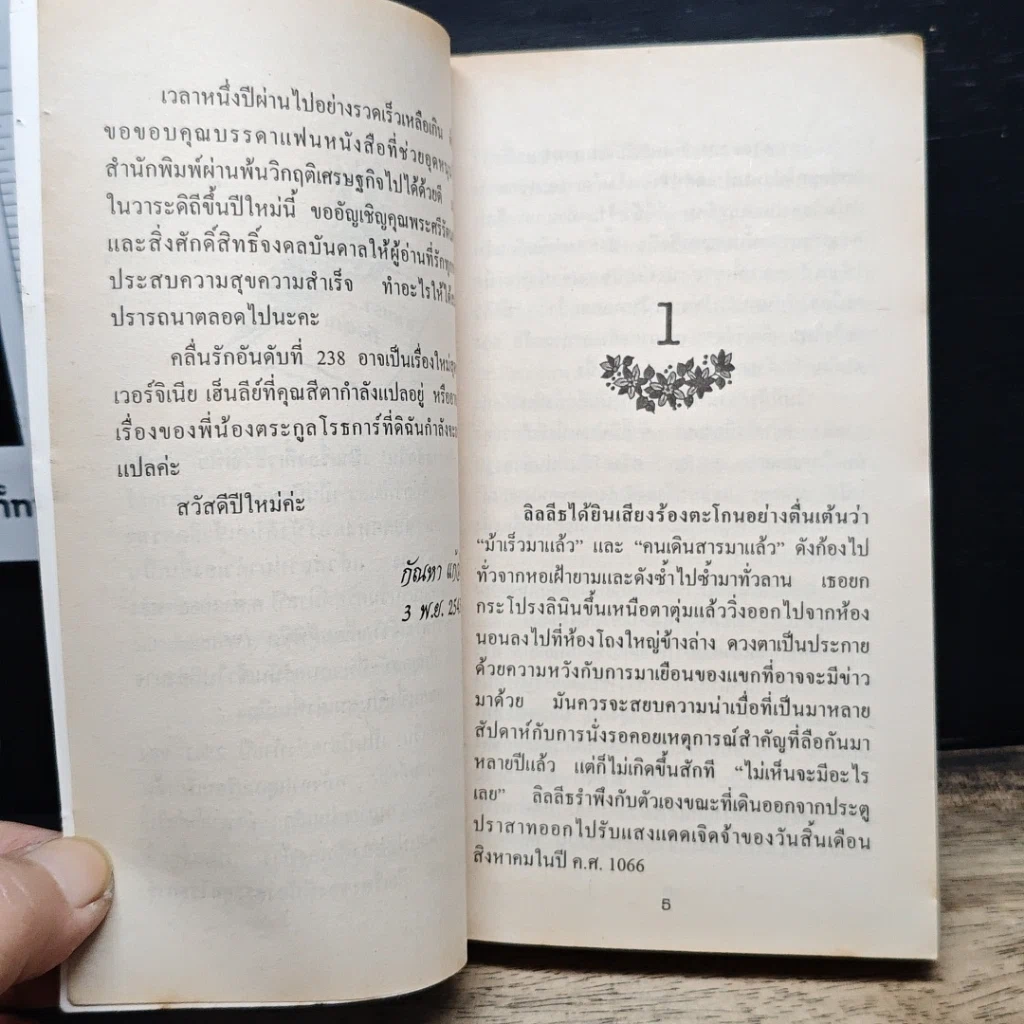 เวลาหนึ่งปีผ่านไปอย่างรวดเร็วเหลือเกิน
ขอขอบคุณบรรดาแฟนหนังสือที่ช่วยอุดหนุน
สำนักพิมพ์ผ่านพ้นวิกฤติเศรษฐกิจไปได้ด้วยดี
ในวาระดิถีขึ้นปีใหม่นี้ ขออัญเชิญคุณพระศรีรัตน
และสิ่งศักดิ์สิทธิ์จงดลบันดาลให้ผู้อ่านที่รักทุก
ประสบความสุขความสำเร็จ ทำอะไรให้ได้
ปรารถนาตลอดไปนะคะ
คลื่นรักอันดับที่ 238 อาจเป็นเรื่องใหม่
เวอร์จิเนีย เฮ็นลีย์ที่คุณสีตากำลังแปลอยู่ หรือ
เรื่องของพี่น้องตระกูลโรธการ์ที่ดิฉันกำลังจะ
แปลค่ะ
สวัสดีปีใหม่ค่ะ
กัณหา แก้ว
3 พ.ย. 254
1
ลิลลีธได้ยินเสียงร้องตะโกนอย่างตื่นเต้นว่า
“ม้าเร็วมาแล้ว” และ “คนเดินสารมาแล้ว” ดังก้องไป
ทั่วจากหอเฝ้ายามและดังซ้ำไปซ้ำมาทั่วลาน เธอยก
กระโปรงลินินขึ้นเหนือตาตุ่มแล้ววิ่งออกไปจากห้อง
นอนลงไปที่ห้องโถงใหญ่ข้างล่าง ดวงตาเป็นประกาย
ด้วยความหวังกับการมาเยือนของแขกที่อาจจะมีข่าว
มาด้วย มันควรจะสยบความน่าเบื่อที่เป็นมาหลาย
สัปดาห์กับการนั่งรอคอยเหตุการณ์สำคัญที่ลือกันมา
หลายปีแล้ว แต่ก็ไม่เกิดขึ้นสักที “ไม่เห็นจะมีอะไร
เลย” ลิลลีธรำพึงกับตัวเองขณะที่เดินออกจากประตู
ปราสาทออกไปรับแสงแดดเจิดจ้าของวันสิ้นเดือน
สิงหาคมในปี ค.ศ. 1066
5